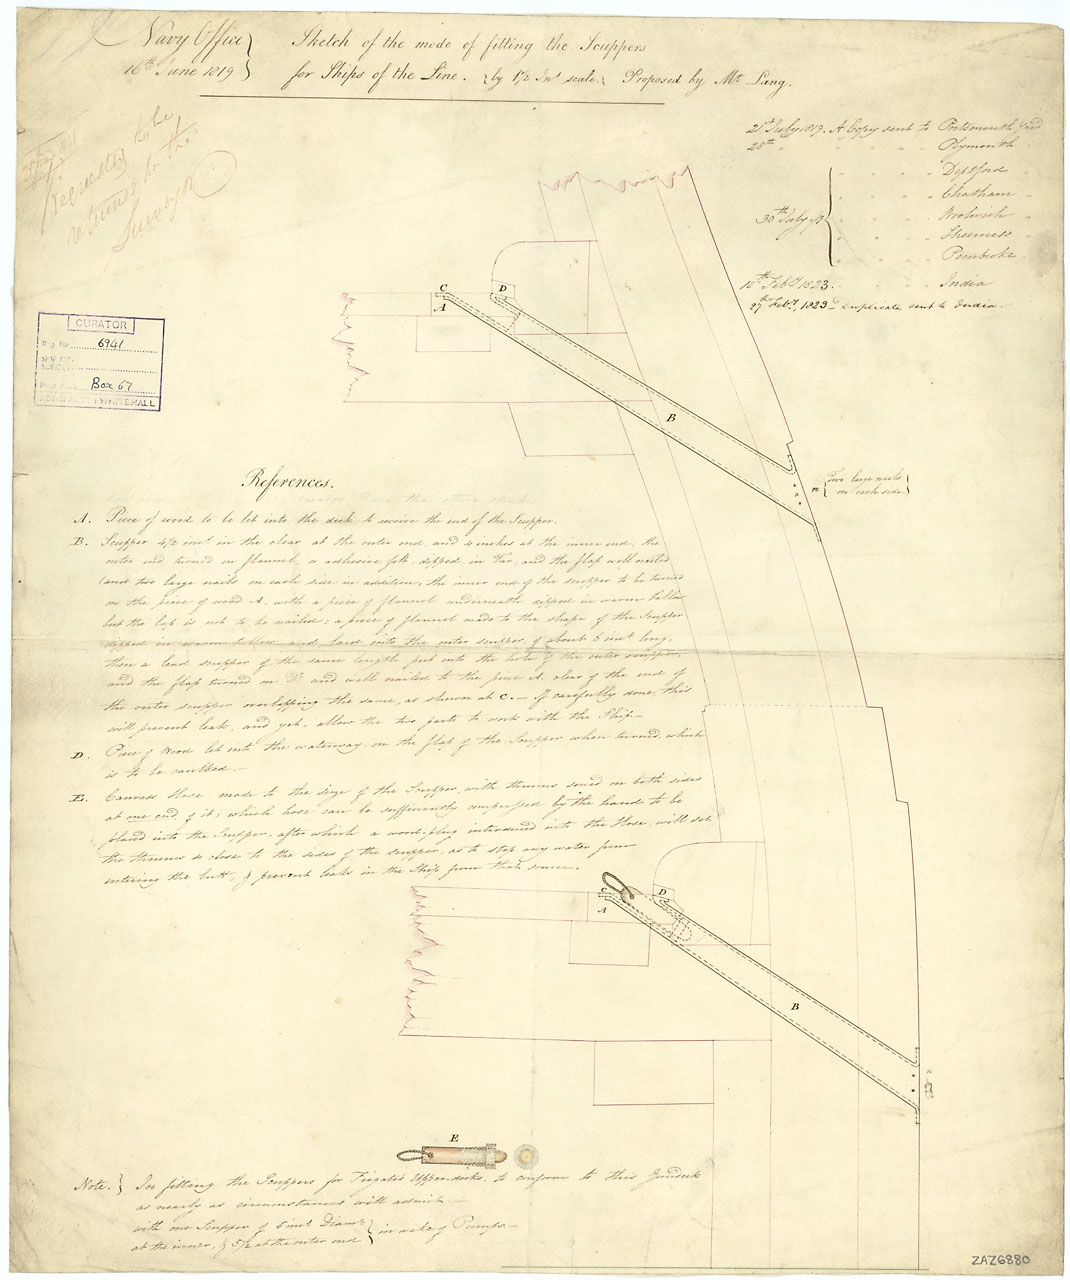 Navy Office
16th June 1819
Sketch of the mode of fitting the Scuppers
for Ships of the Line. by 1½ Inl scale. Proposed by Mr Lang.
Requested to be
returned to the
Surveyor
21st July 1819. A Copy sent to Portsmouth Yard
28th " " " " Plymouth "
Deptford
Chatham
30th July 19 Woolwich
Sheerness
Pembroke
10th Feby 1823. India
27th Feby, 1823 Duplicate sent to India.
CURATOR
Reg No 6941
Box 67
ADMIRALTY: WHITEHALL
C D
A
B
n Two large nails
on each side
References.
A. Piece of wood to be let into the deck, to receive the end of the Scupper.
B. Scupper 4½ ins in the clear at the outer end, and 4 inches at the inner end; the
outer end turned on flannel, or adhesive felt, dipped in Tar, and the flap well nailed
(and two large nails on each side in addition; the inner end of the scupper to be turned
on the piece of wood A, with a piece of flannel underneath dipped in warm tallow
but the lap is not to be nailed; a piece of flannel made to the shape of the Scupper
dipped in warm tallow and laid into the outer scupper, of about 5 ins long;
then a lead scupper of the same length put into the hole of the outer scupper,
and the flap turned on Do and well nailed to the piece A, clear of the end of
the outer scupper overlapping the same, as shewn at C. — If carefully done, this
will prevent leak, and yet, allow the two parts to work with the Ship —
D. Piece of Wood let into the waterway on the flap of the Scupper when turned, which
is to be caulked. —
E. Canvass Hose made to the size of the Scupper, with thrums sewed on both sides
at one end of it; which hose can be sufficiently compressed by the hand to be
placed into the Scupper, after which a wood plug introduced into the Hose, will set
the thrums so close to the sides of the scupper, as to stop any water from
entering the butt, & prevent leaks in the Ship from that source.
C D
A
B
n
E
Note. In fitting the Scuppers for Frigate's Upper decks, to conform to this Gundeck
as nearly as circumstances will admit —
with one Scupper of 5 ins Diamr
at the inner, & 5½ at the outer end in wake of Pumps. —
ZAZ6880